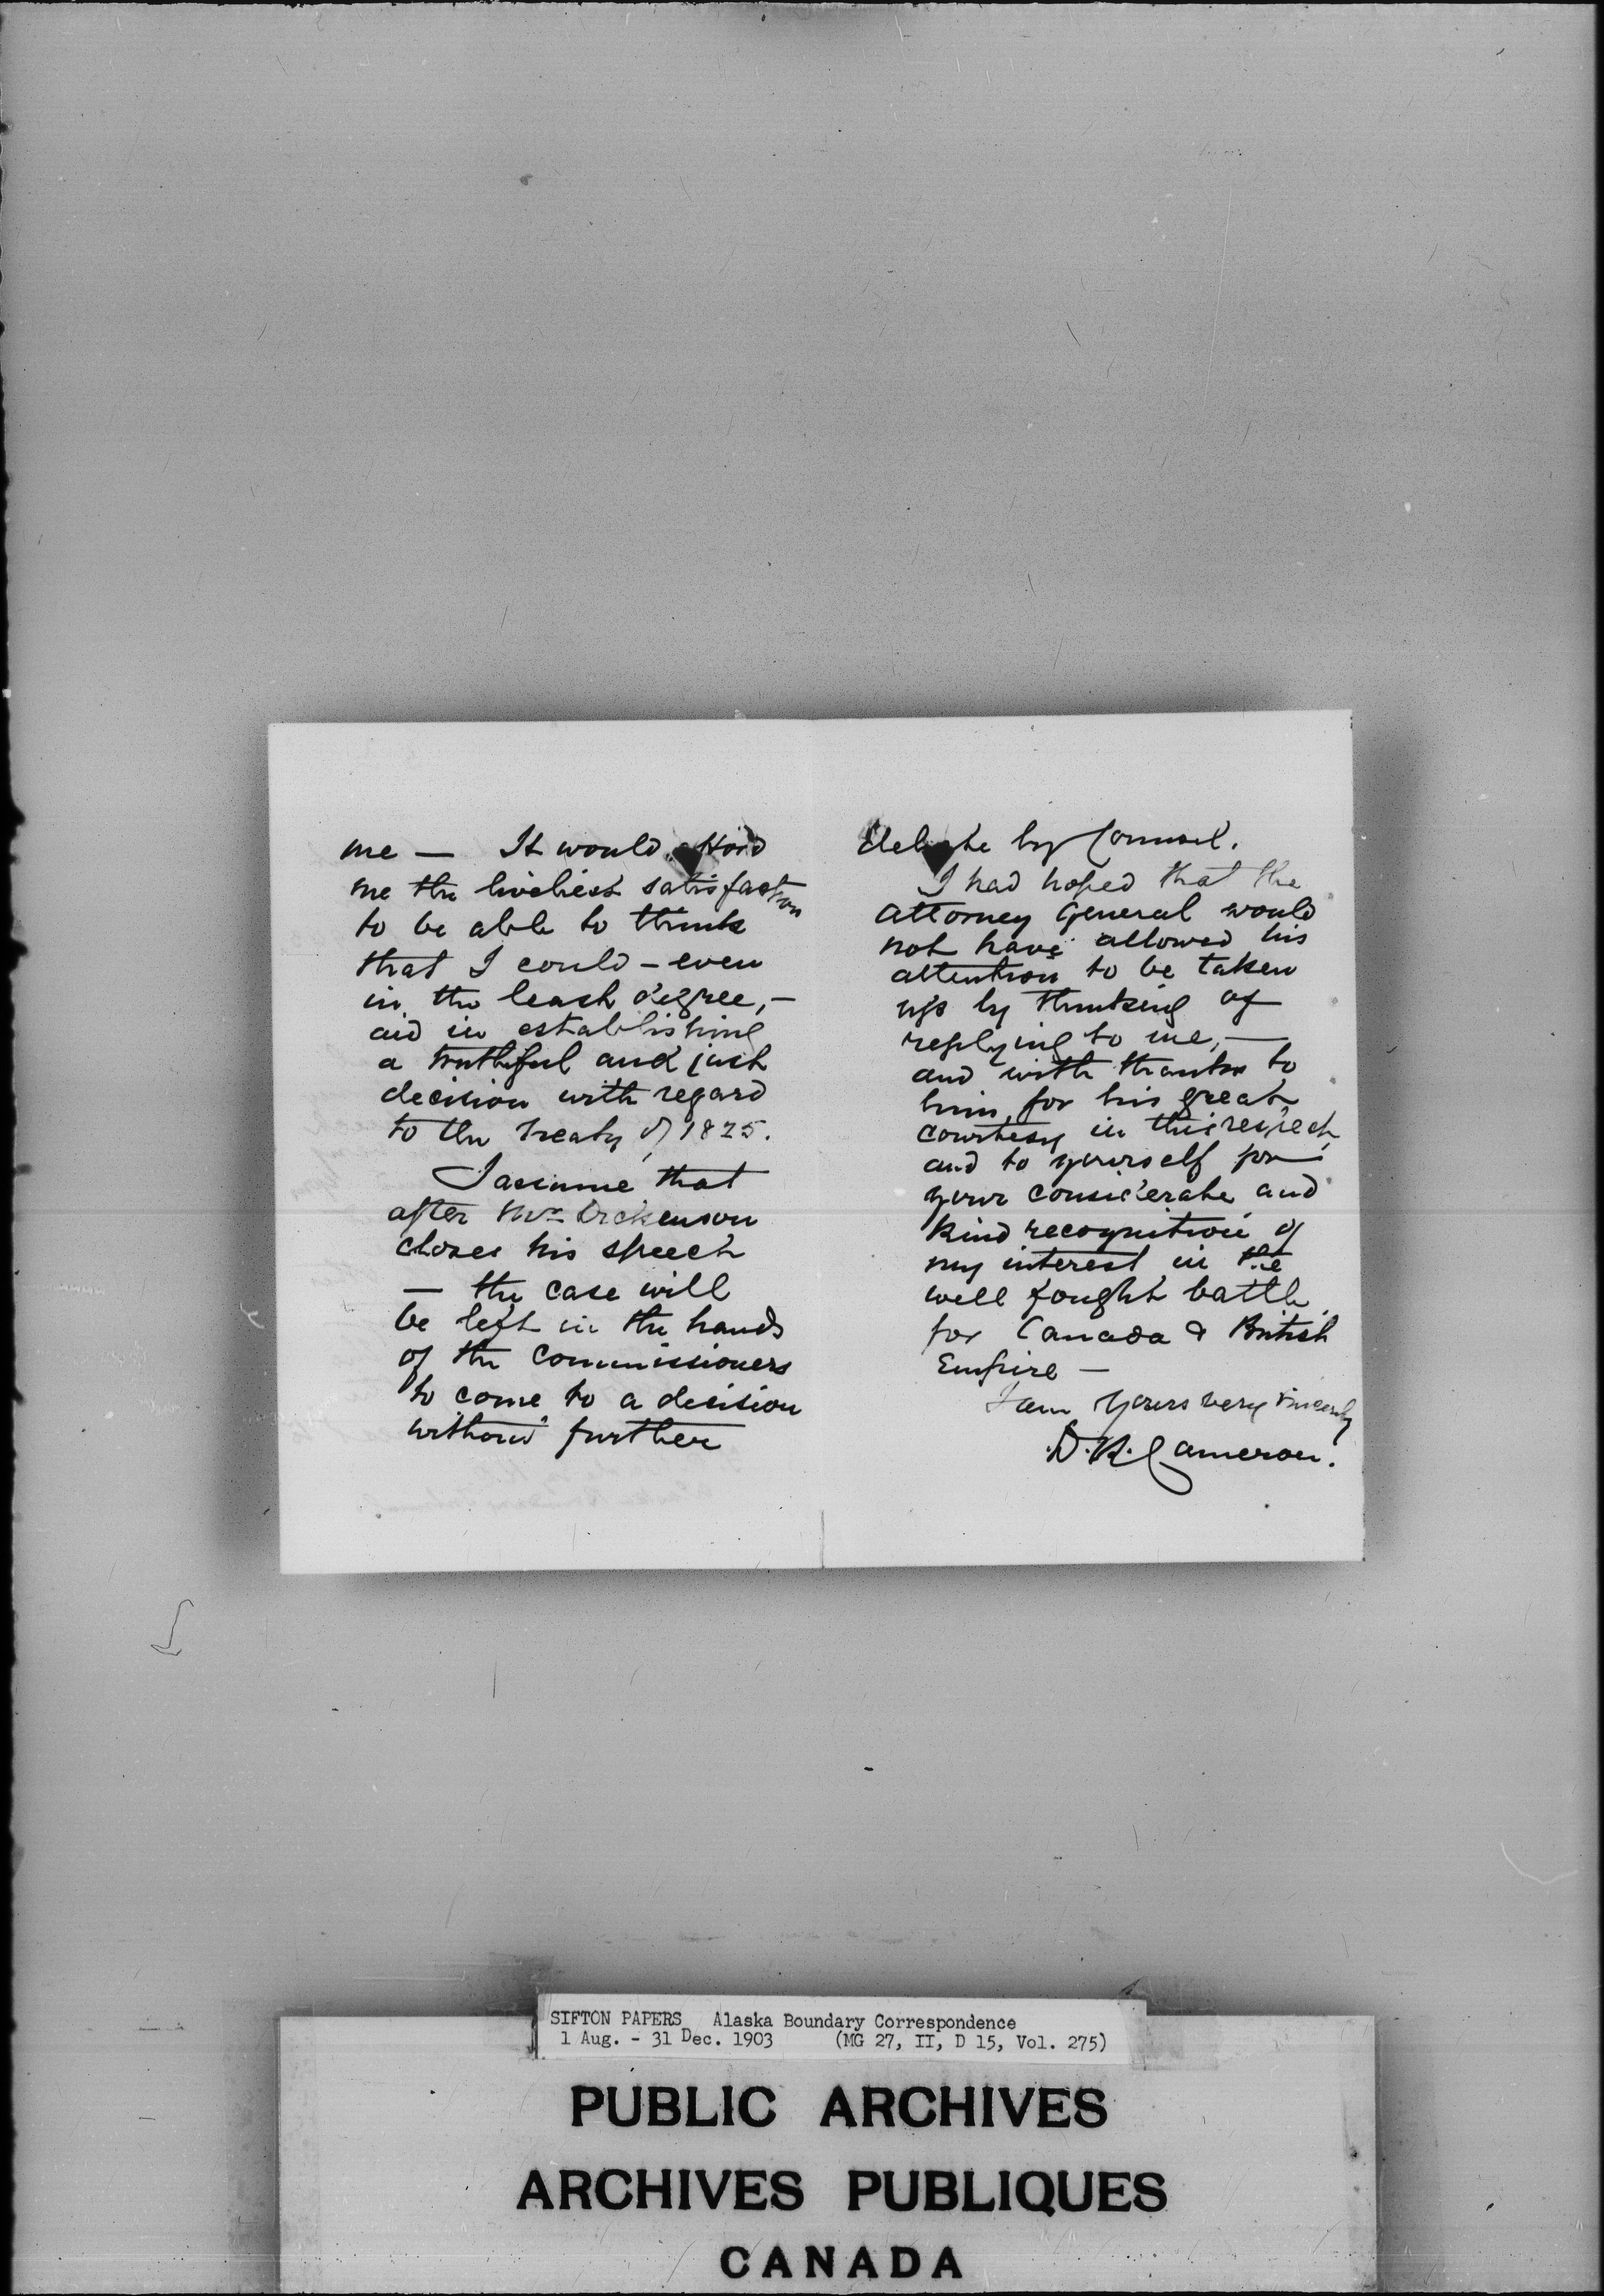 me — It would afford
me the liveliest satisfaction
to be able to think
that I could – even
in the least degree, –
aid in establishing
a truthful and just
decision with regard
to the Treaty of 1825.
I assume that
after Mr Dickenson
closes his speech
— the case will
be left in the hands
of the Commissioners
to come to a decision
without further
debate by Counsel.
I had hoped that the
Attorney General would
not have allowed his
attention to be taken
up by thinking of
replying to me, —
and with thanks to
him, for his great
courtesy in this respect,
and to yourself for
your considerate and
kind recognition of
my interest in the
well fought battle
for Canada & British
Empire —
I am Yours very sincerely
D. R. Cameron.
SIFTON PAPERS Alaska Boundary Correspondence
1 Aug. - 31 Dec. 1903 (MG 27, II, D 15, Vol. 275)
PUBLIC ARCHIVES
ARCHIVES PUBLIQUES
CANADA